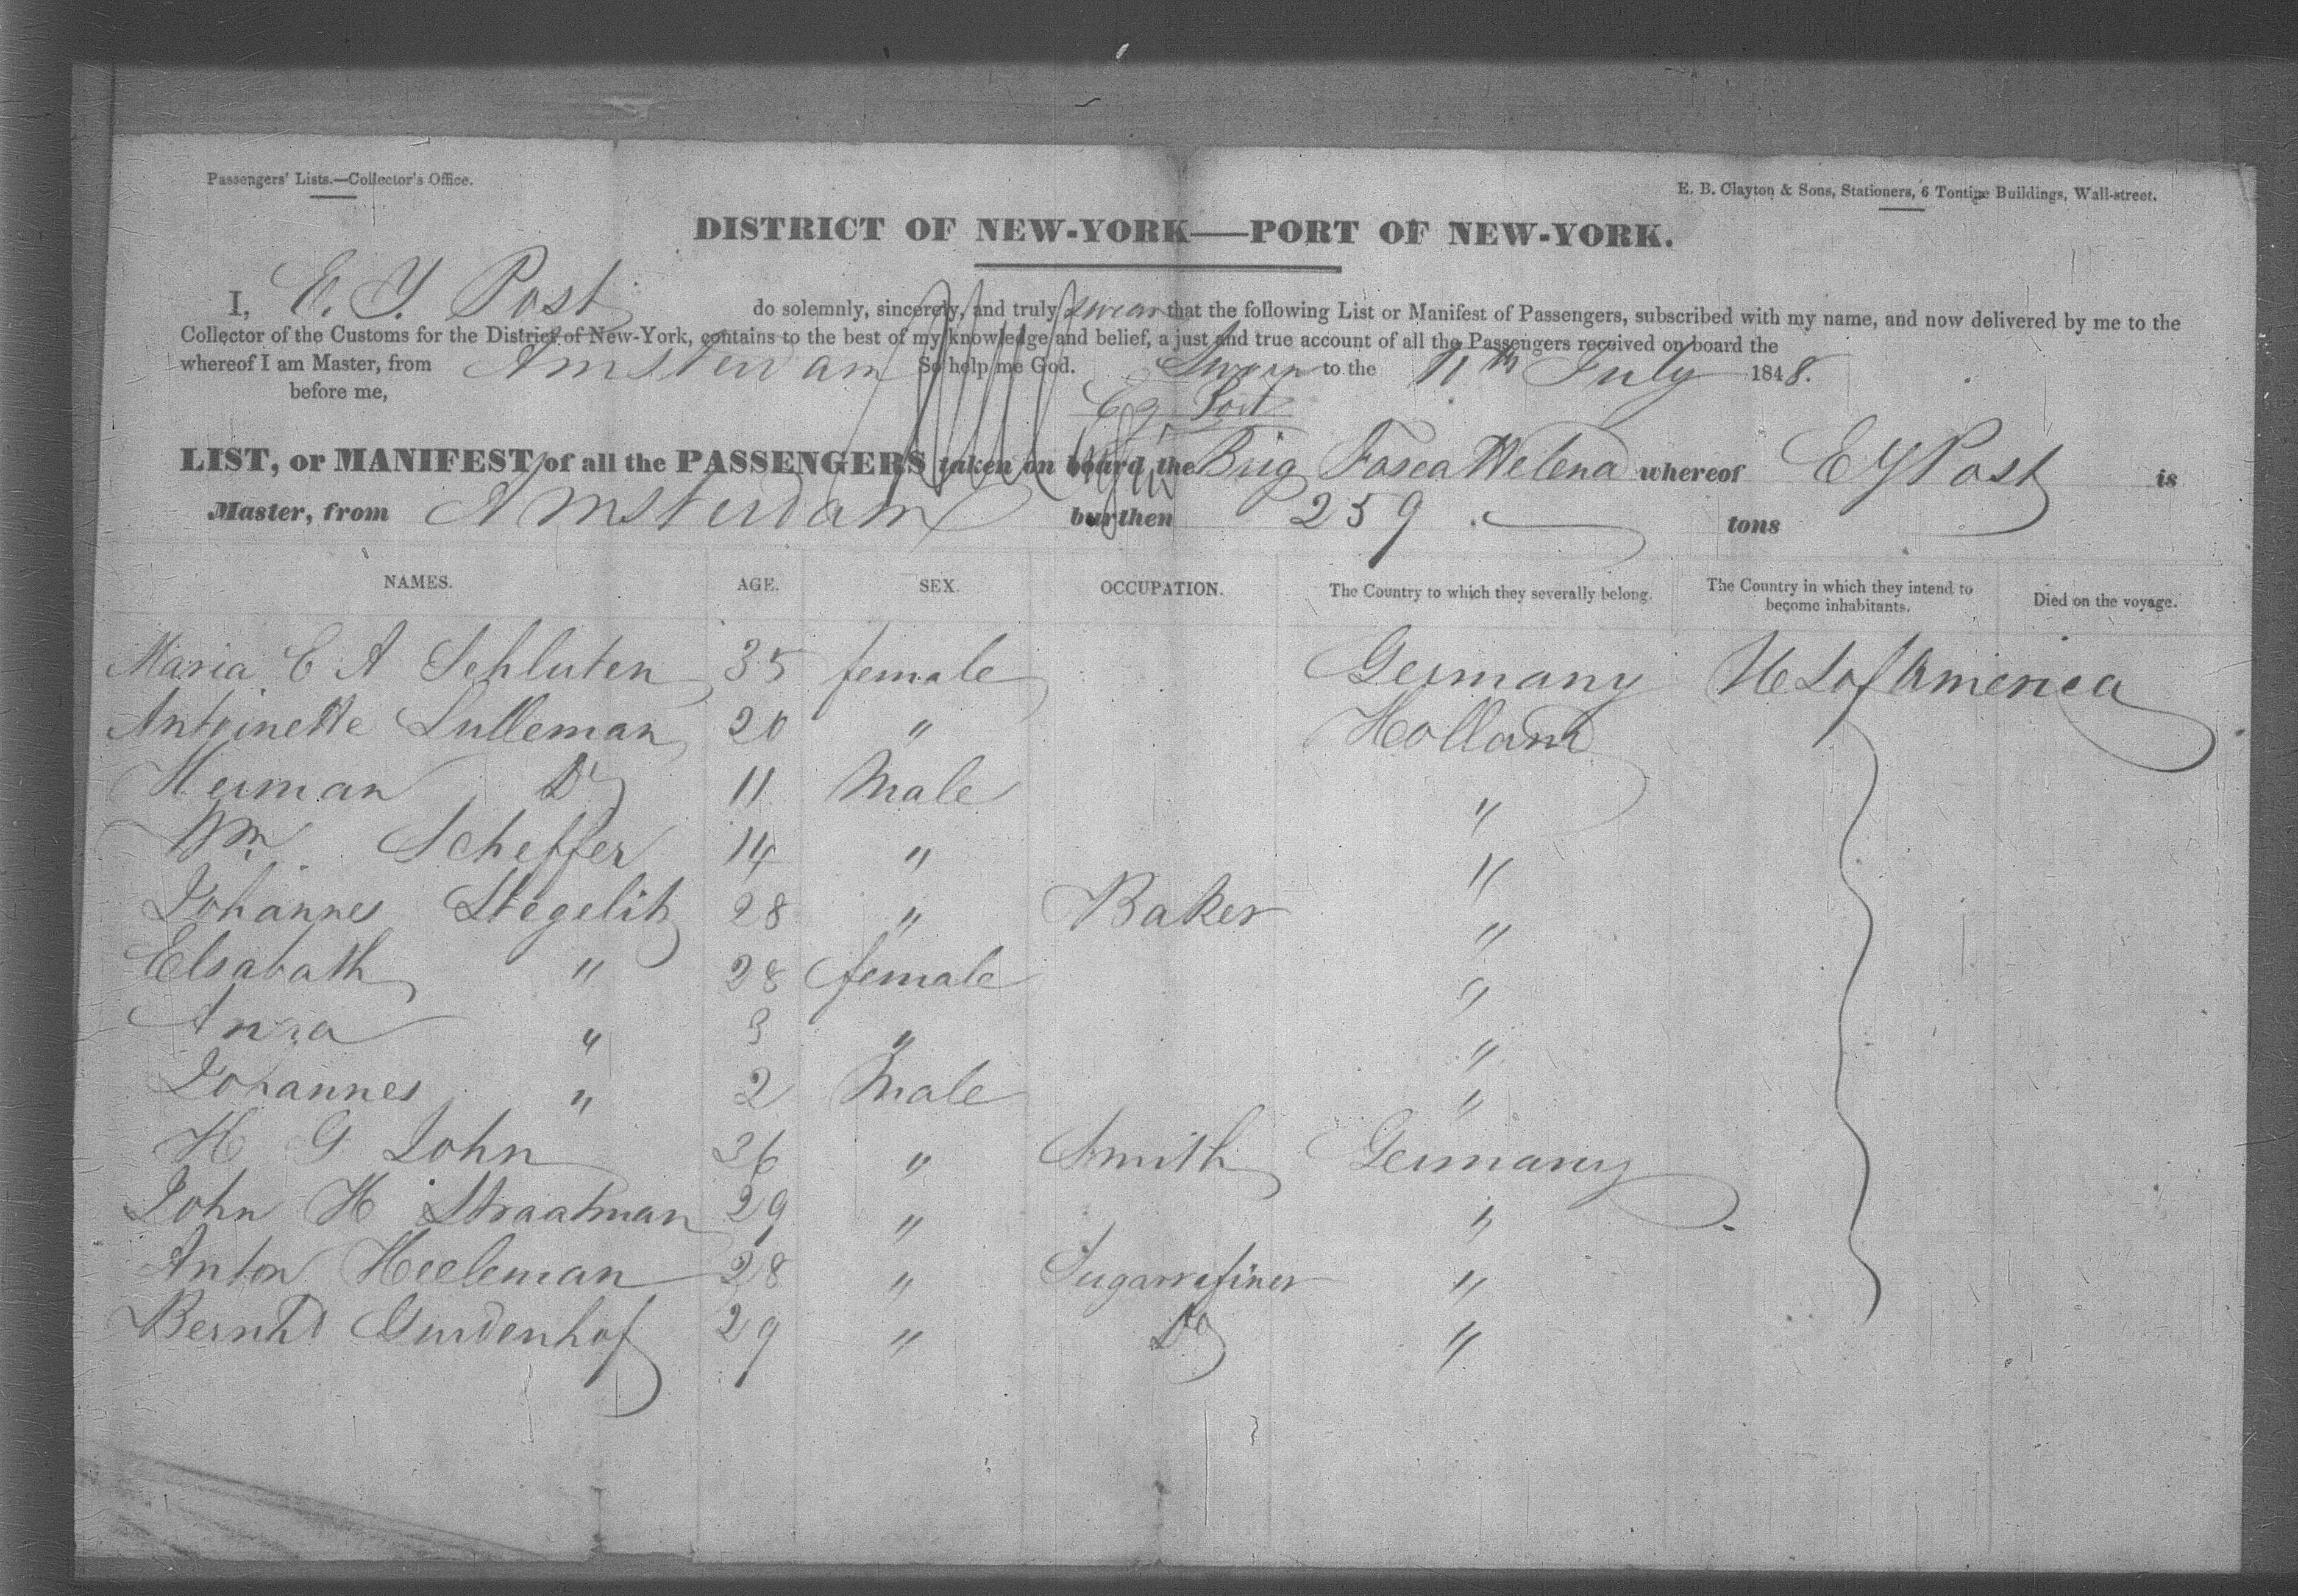 Passengers' Lists.—Collector's Office.
E. B. Clayton & Sons, Stationers, 6 Tontine Buildings, Wall-street.
DISTRICT OF NEW-YORK—PORT OF NEW-YORK.
I, E. Y. Post do solemnly, sincerely, and truly swear that the following List or Manifest of Passengers, subscribed with my name, and now delivered by me to the
Collector of the Customs for the District of New-York, contains to the best of my knowledge and belief, a just and true account of all the Passengers received on board the
whereof I am Master, from Amsterdam So help me God. Sworn to the 11th July 1848.
before me, E Y Post
LIST, or MANIFEST of all the PASSENGERS taken on board the Brig Fosca Helena whereof E Y Post is
Master, from Amsterdam burthen 259 tons
NAMES. AGE. SEX. OCCUPATION. The Country to which they severally belong. The Country in which they intend to become inhabitants. Died on the voyage.
Maria C A Schluten 35 female Germany U S of America
Antoinette Lulleman 20 " Holland
Herman Do 11 Male "
Wm Scheffer 14 " "
Johannes Stegelitz 28 " Baker "
Elsabath " 28 female "
Anna " 3 " "
Johannes " 2 Male "
H G John 36 " Smith Germany
John H Straatman 29 " "
Anton Heeleman 28 " Sugarrefiner "
Bernhd Gurdenhof 29 " Do "